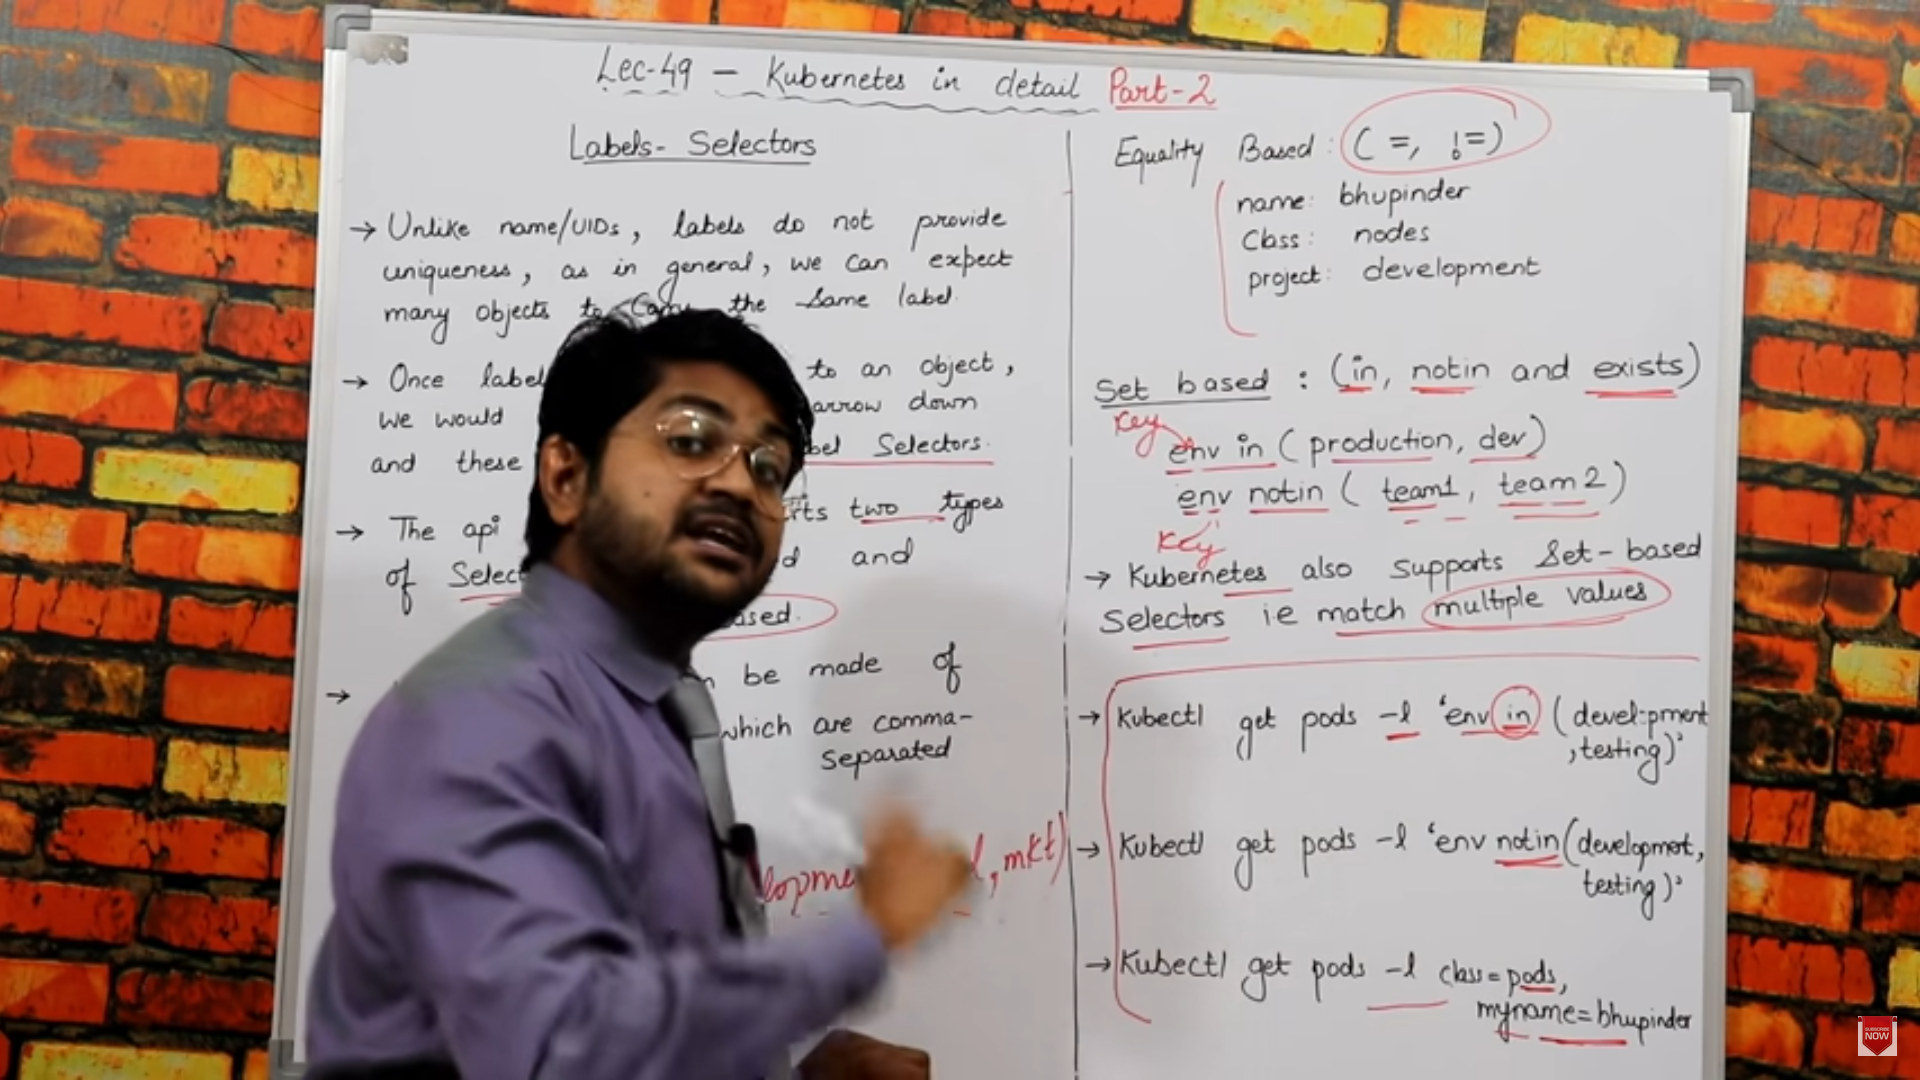 Lec-49 – Kubernetes in detail Part-2
Labels- Selectors
→ Unlike name/UIDs, labels do not provide
uniqueness, as in general, we can expect
many objects to carry the same label.
→ Once label to an object,
we would arrow down
and these bel Selectors.
→ The api rts two types
of Select d and
ased.
→ n be made of
which are comma-
separated
lopme l, mkt)
Equality Based : ( =, != )
name: bhupinder
Class: nodes
project: development
Set based : (in, notin and exists)
Key
env in ( production, dev)
env notin ( team1, team2)
Key
→ Kubernetes also supports Set-based
Selectors ie match multiple values
→ Kubectl get pods -l 'env in (devel:pment
,testing)'
→ Kubectl get pods -l 'env notin (development,
testing)'
→ Kubectl get pods -l class=pods,
myname=bhupinder
SUBSCRIBE
NOW